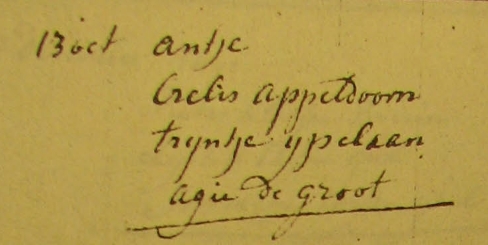 13 oct antje
Crelis appeldoorn
tryntje ypelaan
agie de groot